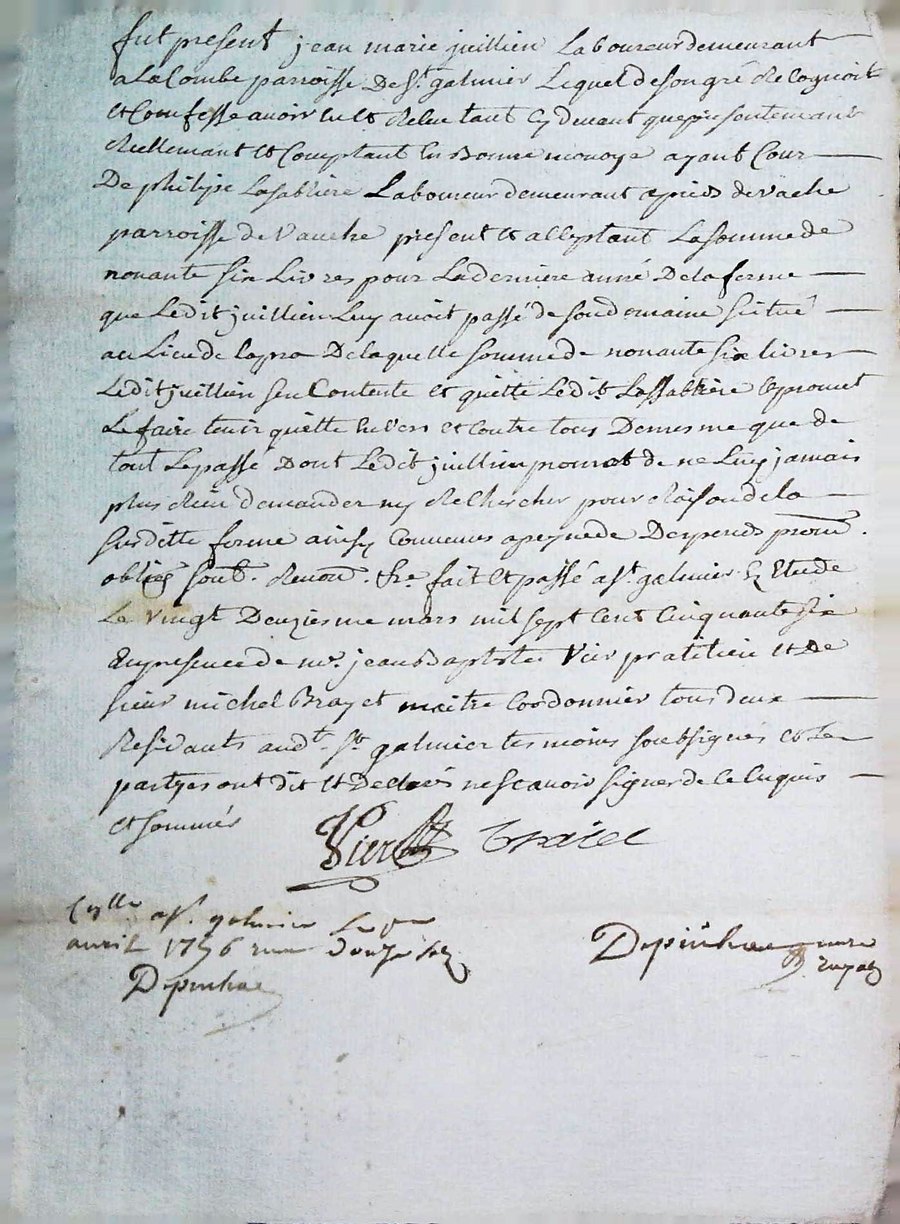 fut present jean marie juillien Laboureur demeurant
a La Combe parroisse De St. galmier Lequel de son gré Recognoit
et Comfesse avoir eu et Receu tant Cy devant que presentemant
Reellemant et Comptant En Bonne monoye ayant Cour
De philipe Lasabliere Laboureur demeurant a pied de vache
parroisse de Vauche present et acceptant La somme de
nonante six Livres pour La derniere anné De la ferme
que Ledit juillien Luy avoit passé de son domaine situé
au Lieu de De laquelle somme de nonante six livres
Ledit juillien sen Contente et quitte Ledit. Lassabliere Et promet
Le faire tenir quitte Envers et Contre tous De mesme que de
tout Le passé Dont Ledit juillien promet de ne Luy jamais
plus Rien demander ny Rechercher pour Raison de la
susditte ferme ainsy Convenus a peyne de Depends prom.
oblig. soub. Renon. fait et passé a St. galmier Etude
Le vingt Deuziesme mars mil sept Cent Cinquante six
En presence de mr. jean Baptiste Vier pratitien et De
sieur michel Brayet maitre Cordonnier tous deux
Residants audt. St. galmier tesmoins soubsignés et Les
partyes ont dit et Declaré ne scavoir signer de Ce Enquis
et sommés
Vier Braiet
a St. galmier Le
avril 1756 Douze sols